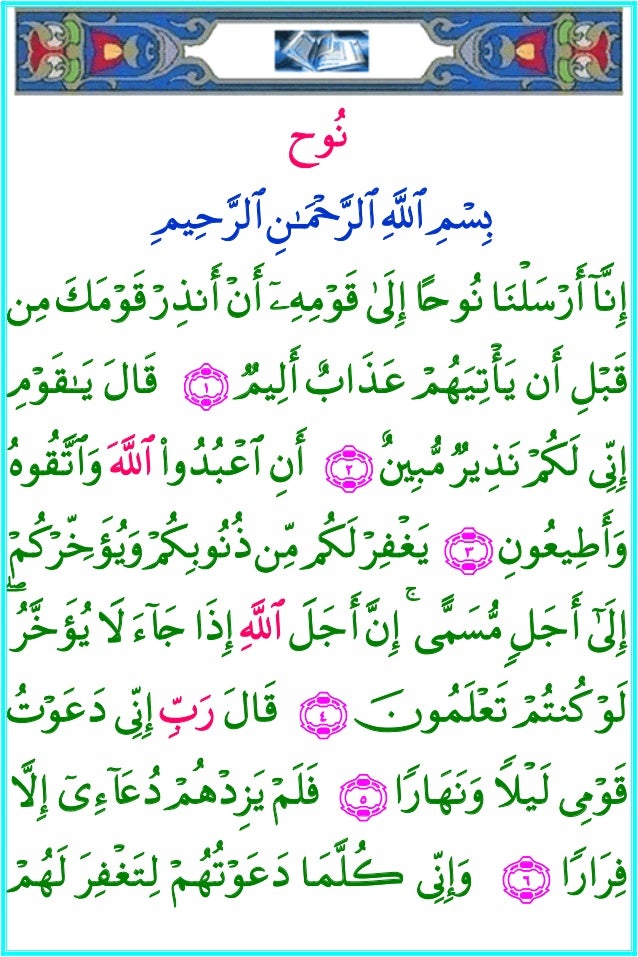 نُوح
بِسْمِ ٱللَّهِ ٱلرَّحْمَٰنِ ٱلرَّحِيمِ
إِنَّآ أَرْسَلْنَا نُوحًا إِلَىٰ قَوْمِهِۦٓ أَنْ أَنذِرْ قَوْمَكَ مِن
قَبْلِ أَن يَأْتِيَهُمْ عَذَابٌ أَلِيمٌ ١ قَالَ يَٰقَوْمِ
إِنِّى لَكُمْ نَذِيرٌ مُّبِينٌ ٢ أَنِ ٱعْبُدُوا۟ ٱللَّهَ وَٱتَّقُوهُ
وَأَطِيعُونِ ٣ يَغْفِرْ لَكُم مِّن ذُنُوبِكُمْ وَيُؤَخِّرْكُمْ
إِلَىٰٓ أَجَلٍ مُّسَمًّى ۚ إِنَّ أَجَلَ ٱللَّهِ إِذَا جَآءَ لَا يُؤَخَّرُ ۖ
لَوْ كُنتُمْ تَعْلَمُونَ ٤ قَالَ رَبِّ إِنِّى دَعَوْتُ
قَوْمِى لَيْلًا وَنَهَارًا ٥ فَلَمْ يَزِدْهُمْ دُعَآءِىٓ إِلَّا
فِرَارًا ٦ وَإِنِّى كُلَّمَا دَعَوْتُهُمْ لِتَغْفِرَ لَهُمْ